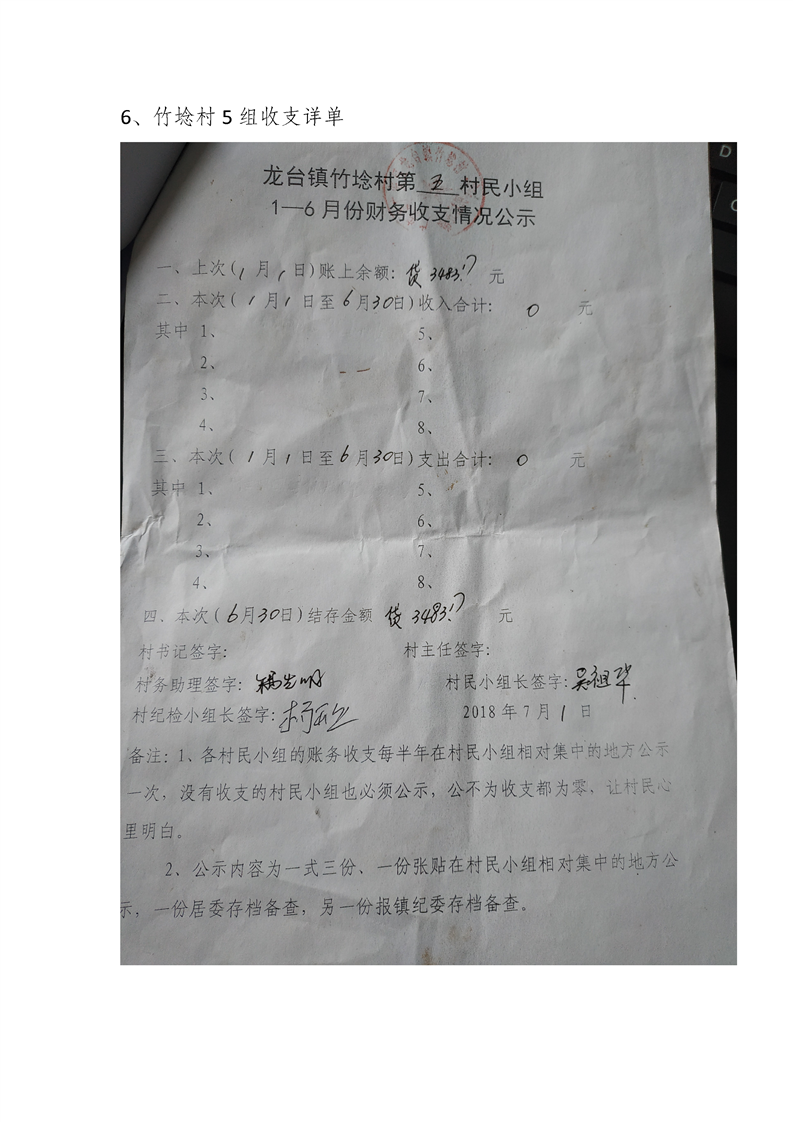 6、竹埝村 5 组收支详单
龙台镇竹埝村第 五 村民小组
1—6 月份财务收支情况公示
一、上次(1 月 1 日)账上余额: 贷 3483.17 元
二、本次( 1 月 1 日至 6 月 30 日)收入合计: 0 元
其中 1、 5、
2、 6、
3、 7、
4、 8、
三、本次( 1 月 1 日至 6 月 30 日)支出合计: 0 元
其中 1、 5、
2、 6、
3、 7、
4、 8、
四、本次( 6 月 30 日)结存金额 贷 3483.17 元
村书记签字: 村主任签字:
村务助理签字: 村民小组长签字: 吴祖华
村纪检小组长签字: 2018 年 7 月 1 日
备注:1、各村民小组的账务收支每半年在村民小组相对集中的地方公示
一次,没有收支的村民小组也必须公示,公不为收支都为零,让村民心
里明白。
2、公示内容为一式三份、一份张贴在村民小组相对集中的地方公
示,一份居委存档备查,另一份报镇纪委存档备查。